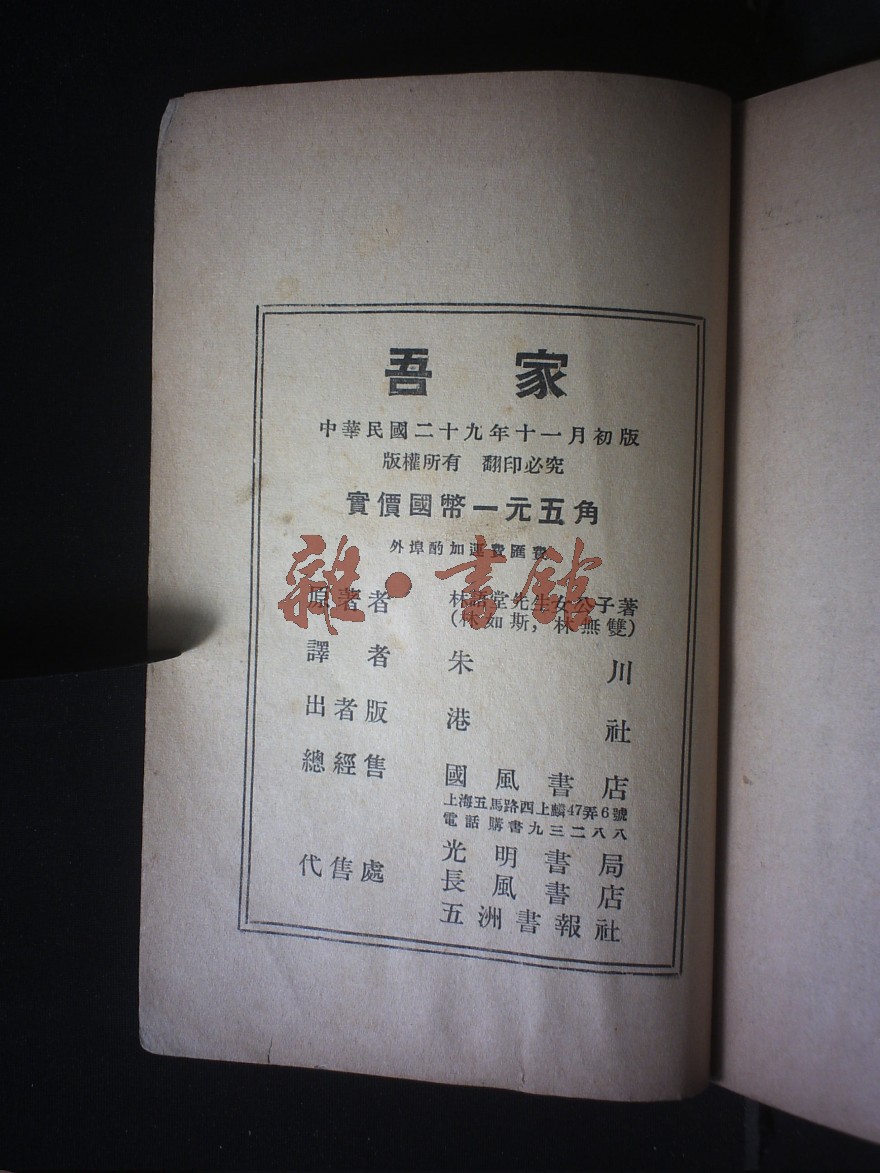 吾家
中華民國二十九年十一月初版
版權所有 翻印必究
實價國幣一元五角
外埠酌加運費匯費
原著者 林語堂先生女公子著
(林如斯，林無雙)
譯者 朱川
出者版 港社
總經售 國風書店
上海五馬路四上麟47弄6號
電話購書九三二八八
代售處 光明書局
長風書店
五洲書報社
雜·書館